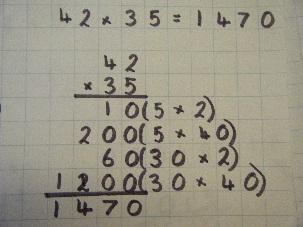 42 × 35 = 1470
42
× 35
10 (5 × 2)
200 (5 × 40)
60 (30 × 2)
1200 (30 × 40)
1470